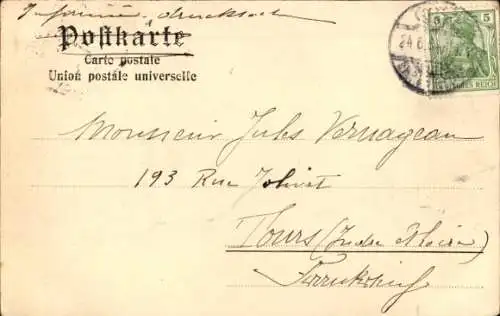 Drucksache
Postkarte
Carte postale
Union postale universelle
5 5
24.6.
DEUTSCHES REICH
Monsieur Jules Vernageau
193 Rue Jolivet
Tours (Indre & Loire)
Frankreich